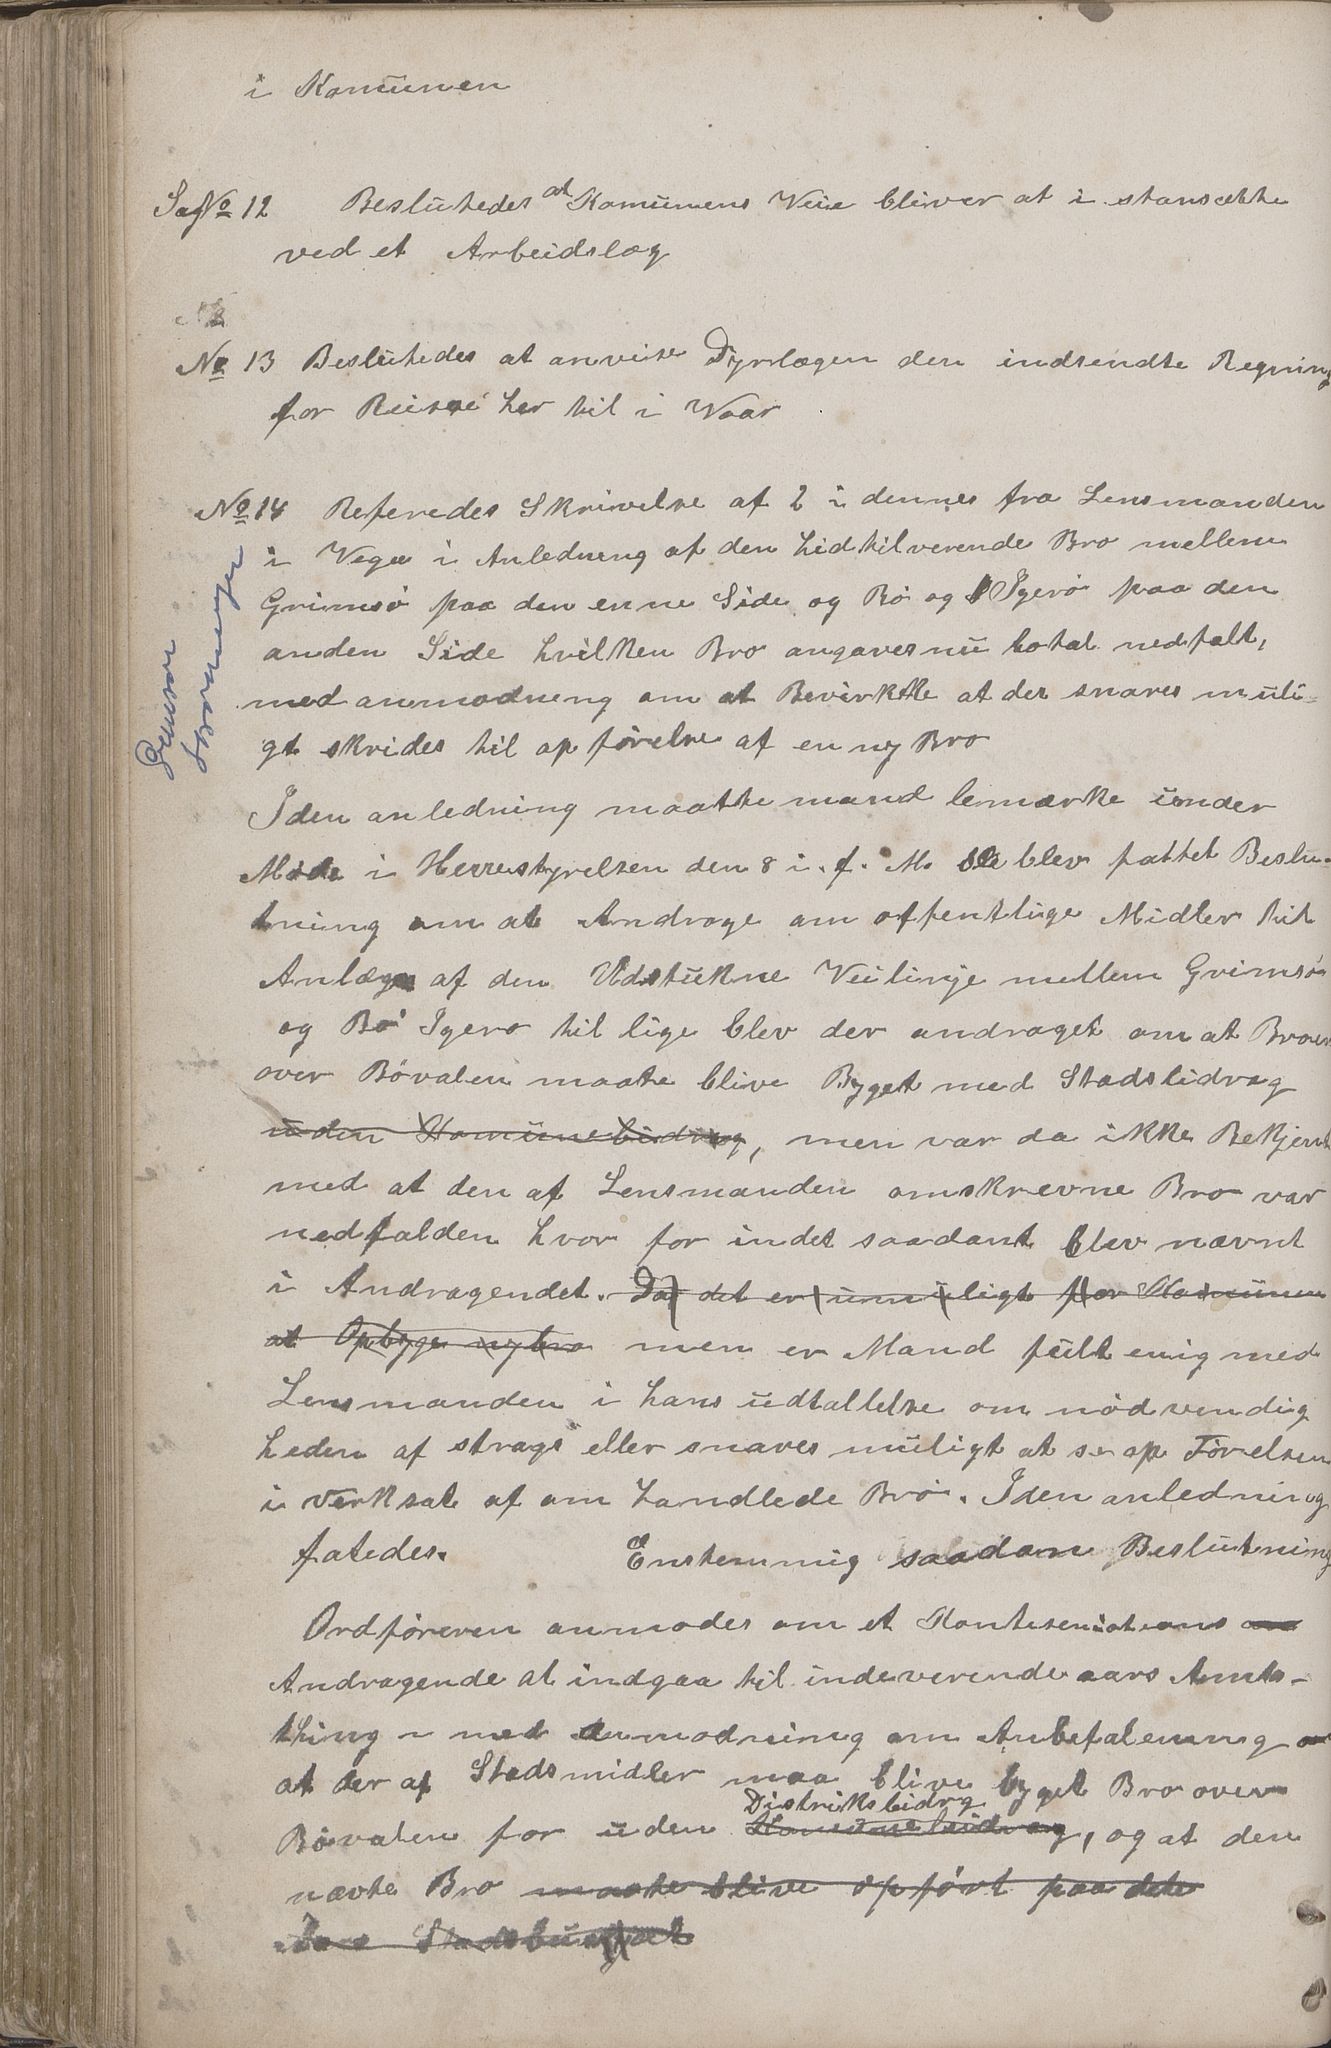 i Komunen
Sag No 12 Beslutedes at Komunens Veie bliver at i stansætte
ved et Arbeidslag
No 13 Beslutedes at anvise Dyrlægen den indsendte Regning
for Reise her til i Vaar
No 14 Referedes Skrivelse af 2 i dennes fra Lensmanden
i Vega i Anledning af den hidtilverende Bro mellem
Grimsö paa den enne Side og Bö og Igerö paa den
anden Side hvilken Bro angaves nu total nedfalt,
med anmodning om at Bevirkke at der snares muli-
gt skrides til opförelse af en ny Bro
I den anledning maatte mand bemærke under
Möde i Herrestyrelsen den 8 i. f. M. blev fattet Beslu-
tning om at Androge om offentlige Midler til
Anlæg af den Udstukne Veilinje mellem Grimsö
og Bö Igerö til lige blev der androget om at Broen
over Bövalen maate blive Byget med Stadsbidrag
uden Komunebidrag, men var da ikke Bekjent
med at den af Lensmanden omskrevne Bro var
nedfalden hvor for indet saadant blev nævnt
i Andragendet. Da det er umuligt for Komunen
at Opbyge ny bro men er Mand fult enig med
Lensmanden i hans udtallelse om nödvendig
heden af strags eller snares muligt at se op Förelsen
i verksat af om handlede Bro. I den anledning
fatedes. Enstemmig saadan Beslutning
Ordföreren anmodes om et
Andragende at indgaa til indeverende aars Amts-
thing med Anmodning om Anbefalening
at der af Stadsmidler maa blive byget Bro over
Distriksbidrg
Bövalen for uden Komunebidrag, og at den
nævte Bro maate blive opfört paa dete
aars Stadsbudjet